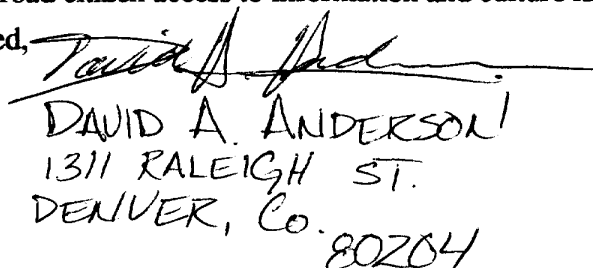 ed, David A. Anderson
DAVID A. ANDERSON
1311 RALEIGH ST.
DENVER, Co.
80204